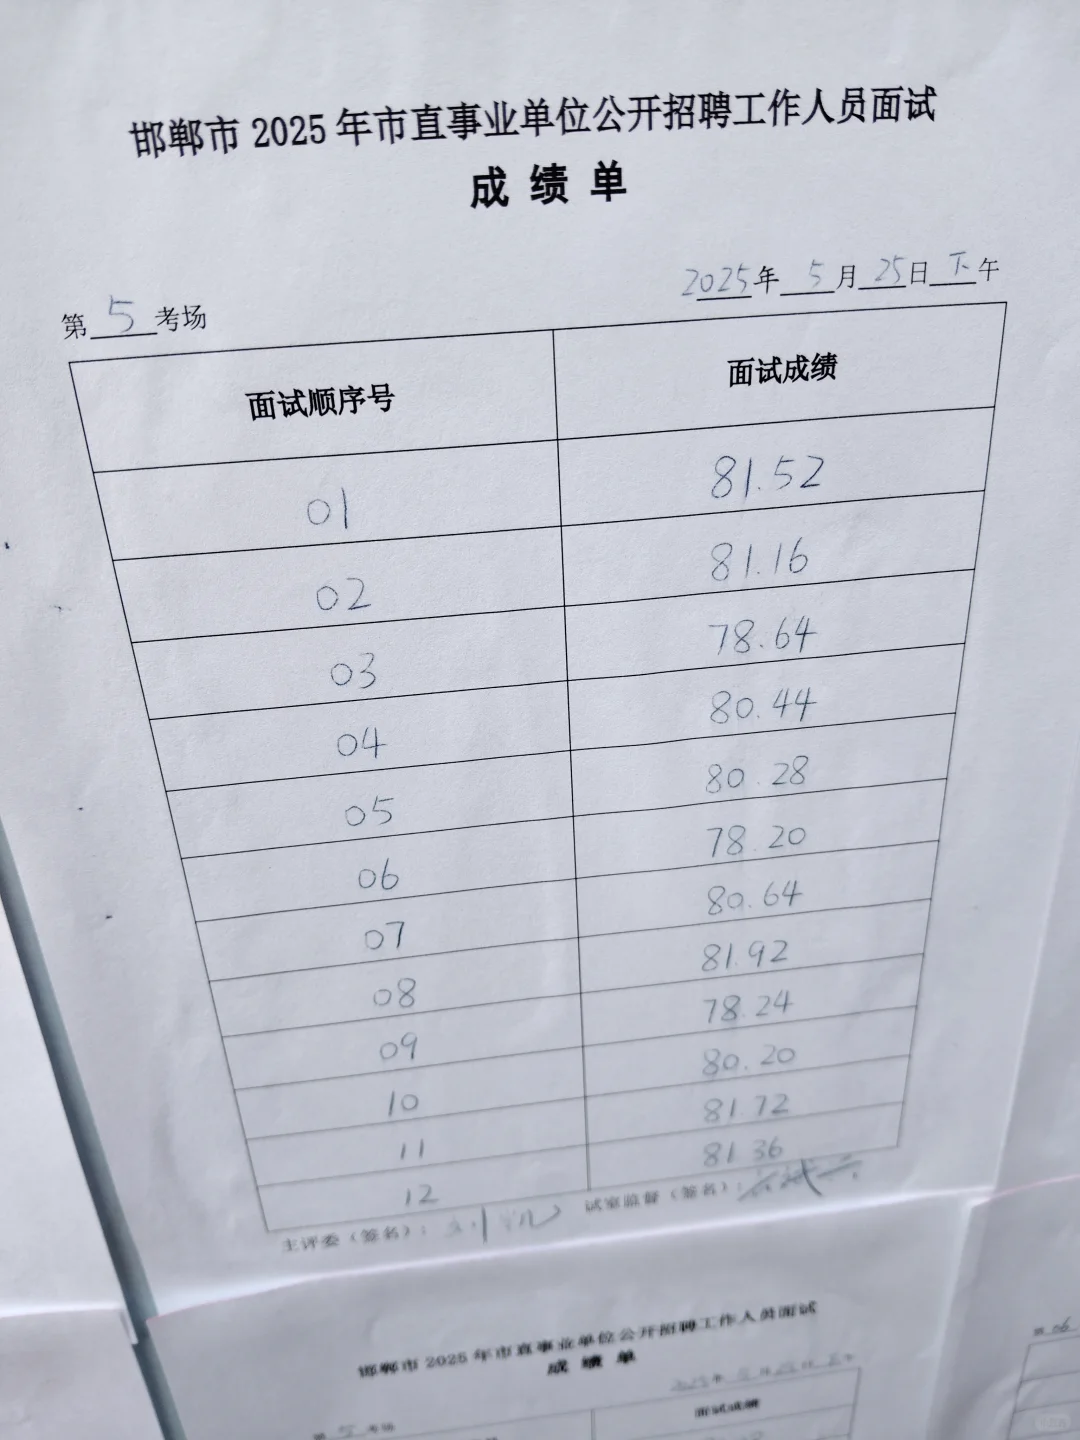 邯郸市 2025 年市直事业单位公开招聘工作人员面试
成 绩 单
2025年 5 月 25 日 下 午
第 5 考场
面试顺序号 面试成绩
01 81.52
02 81.16
03 78.64
04 80.44
05 80.28
06 78.20
07 80.64
08 81.92
09 78.24
10 80.20
11 81.72
12 81.36
主评委（签名）：刘凯 试室监督（签名）：
邯郸市 2025 年市直事业单位公开招聘工作人员面试
成 绩 单
2025年 5 月 25 日 午
第 5 考场
面试成绩
第 06